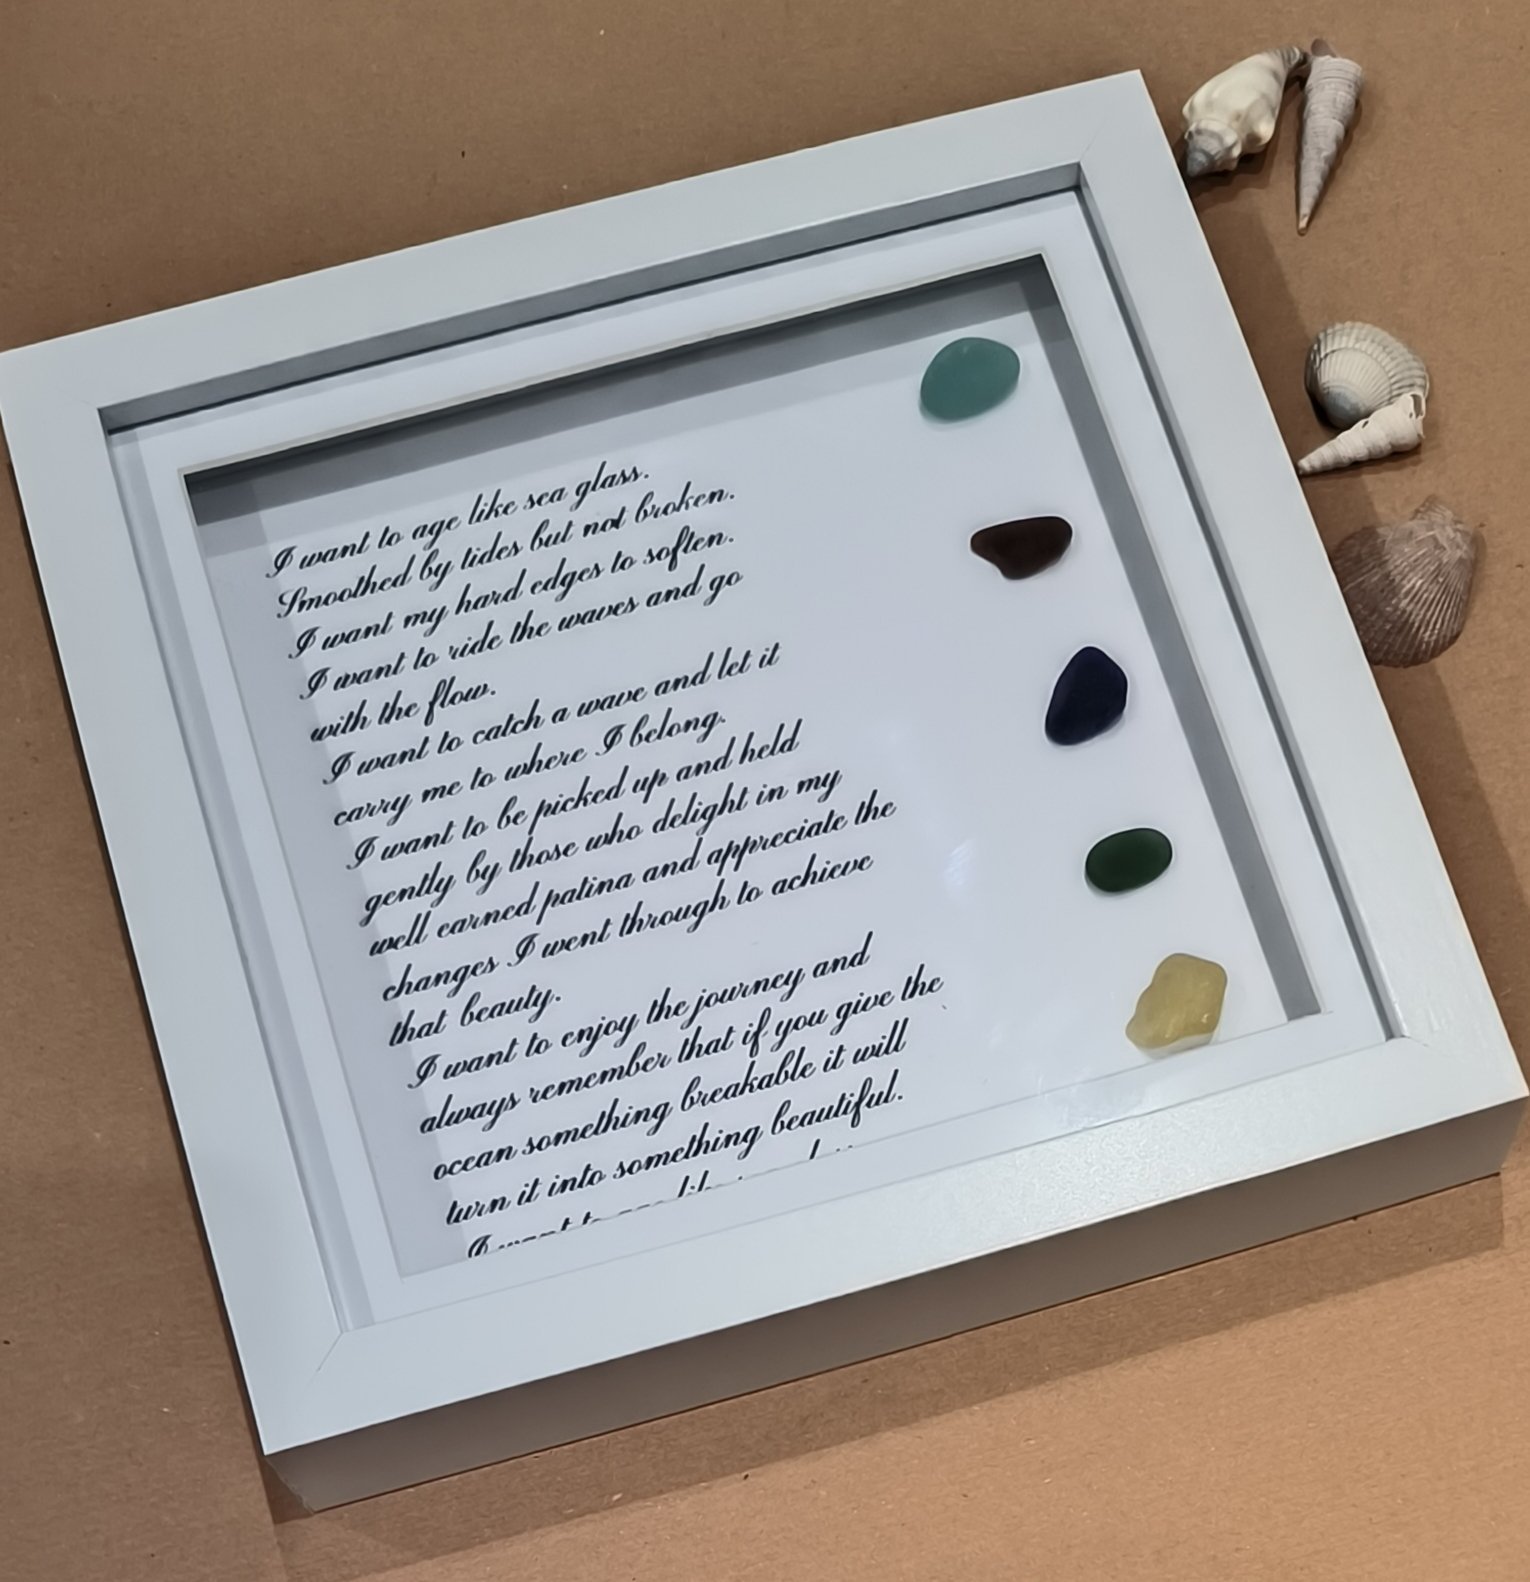 I want to age like sea glass.
Smoothed by tides but not broken.
I want my hard edges to soften.
I want to ride the waves and go
with the flow.
I want to catch a wave and let it
carry me to where I belong.
I want to be picked up and held
gently by those who delight in my
well earned patina and appreciate the
changes I went through to achieve
that beauty.
I want to enjoy the journey and
always remember that if you give the
ocean something breakable it will
turn it into something beautiful.
I want to